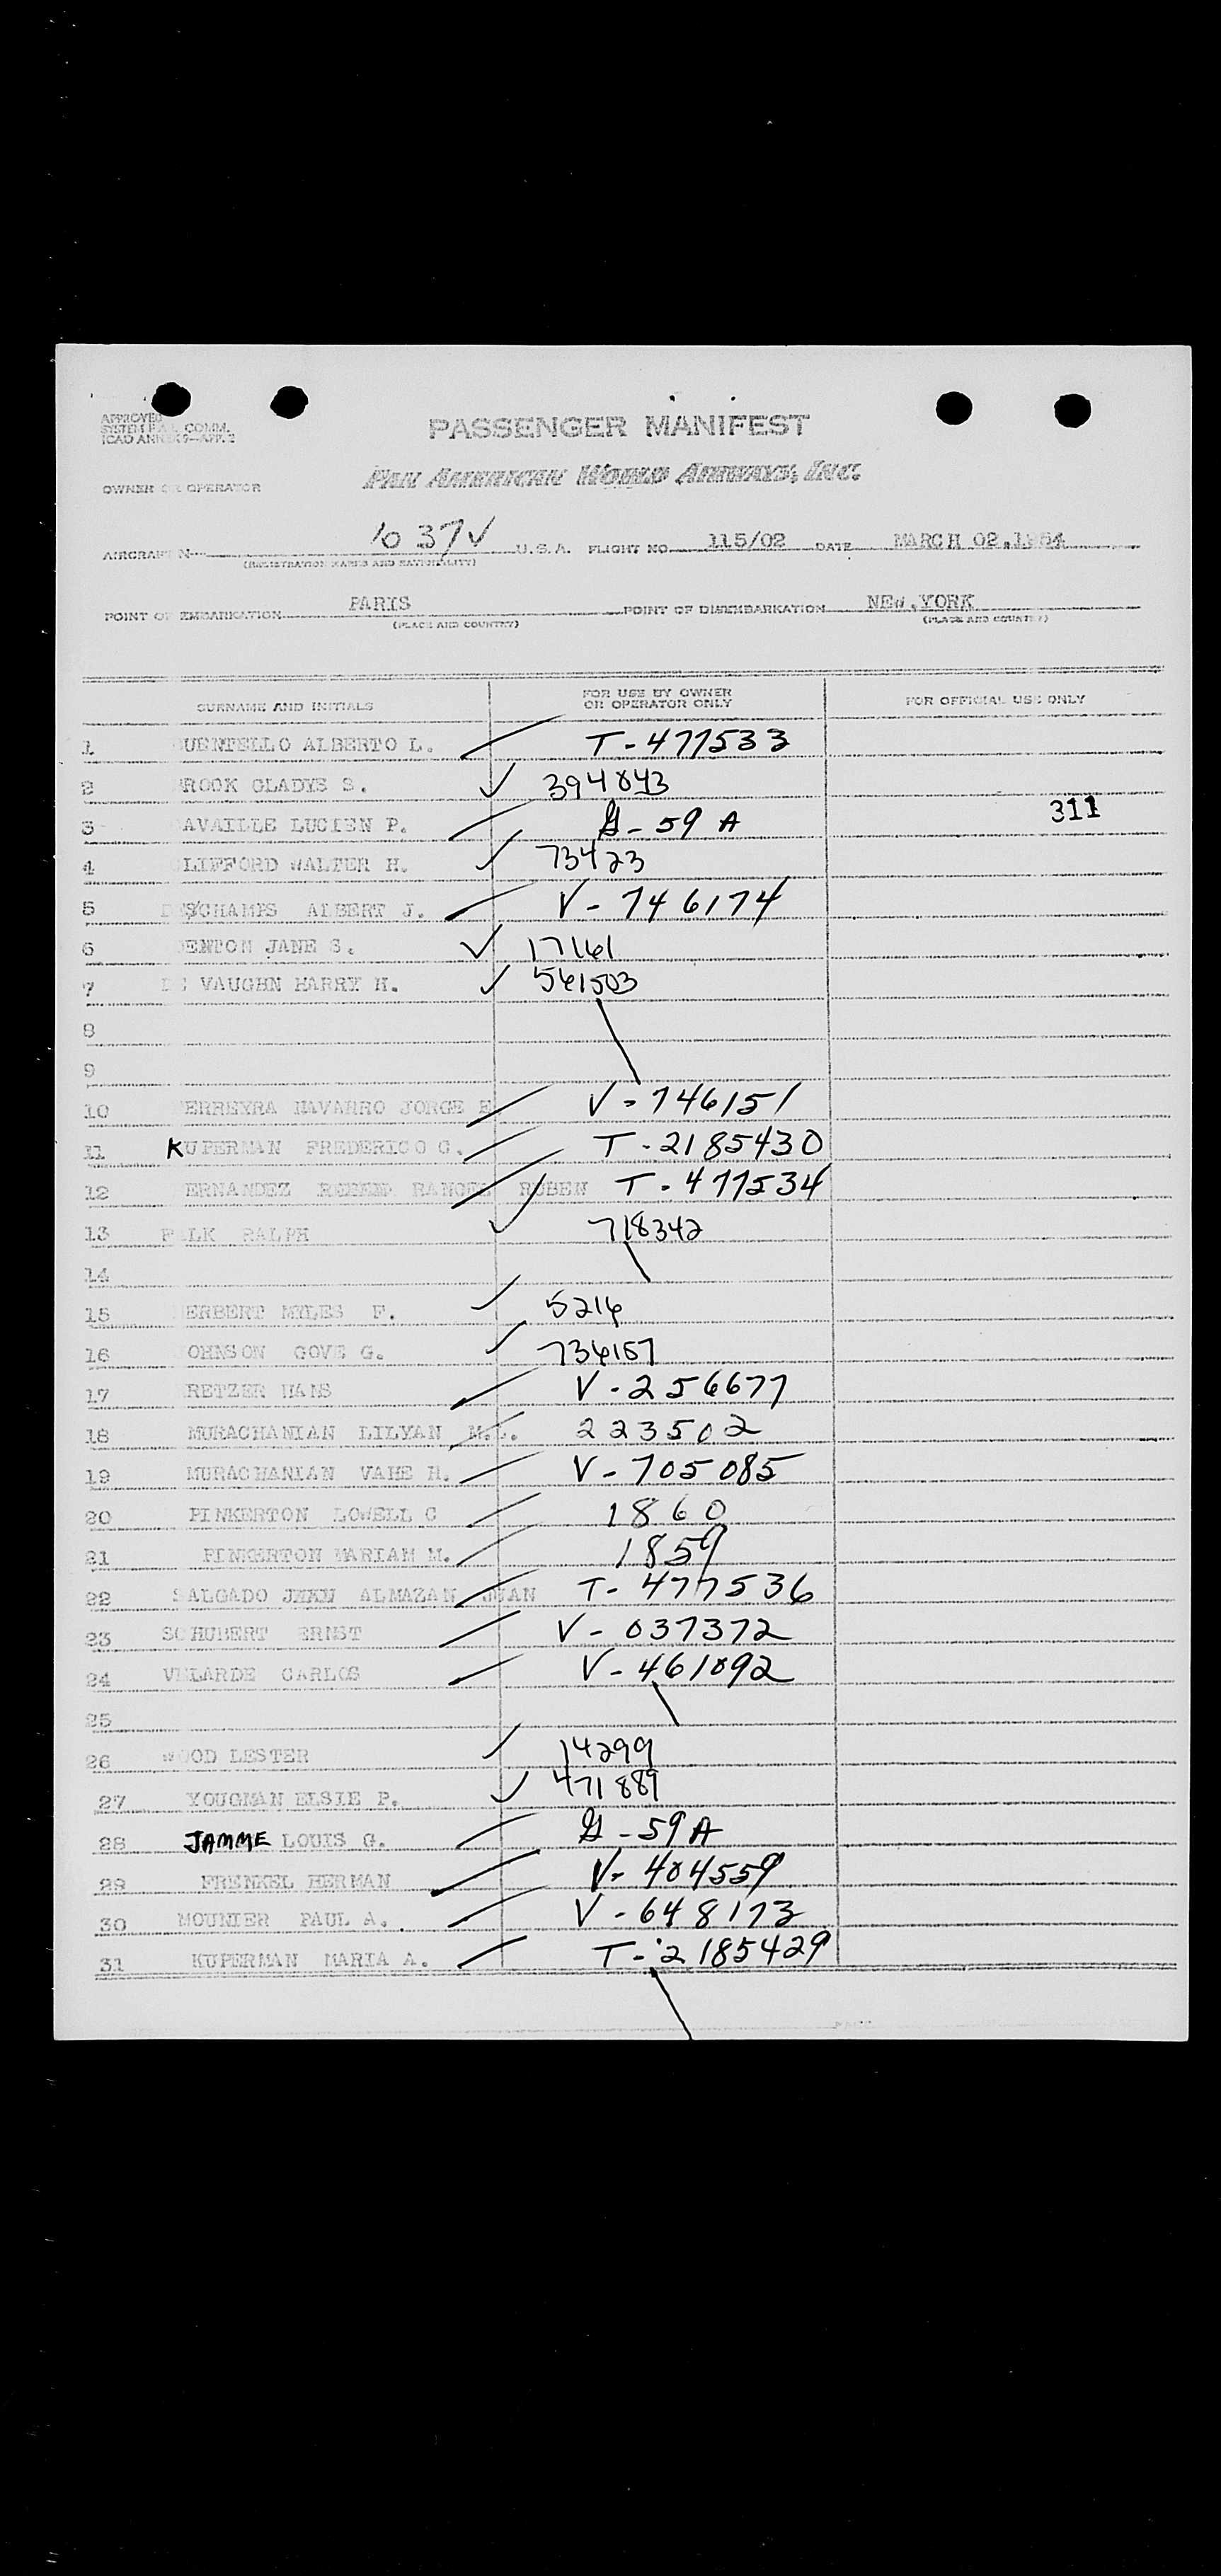 APPROVED
SYSTEM P.A.A. COMM.
ICAO ANNEX 9—APP. 2
PASSENGER MANIFEST
OWNER OR OPERATOR PAN AMERICAN WORLD AIRWAYS, INC.
AIRCRAFT N 1037V U.S.A. FLIGHT NO. 115/02 DATE MARCH 02,1954
(REGISTRATION MARKS AND NATIONALITY)
POINT OF EMBARKATION PARIS POINT OF DISEMBARKATION NEW,YORK
(PLACE AND COUNTRY) (PLACE AND COUNTRY)
SURNAME AND INITIALS FOR USE BY OWNER OR OPERATOR ONLY FOR OFFICIAL USE ONLY
1 ALBERTO L. T-477533
2 ROOK GLADYS S. 394843
3 AVAILLE LUCIEN P. 59 A 311
4 LIFFORD WALTER H. 73423
5 DESCHAMPS ALBERT J. V-746174
6 ENTON JANE S. 17161
7 DE VAUGHN HARRY H. 561503
8
9
10 ERREYRA NAVARRO JORGE E V-746151
11 KUPERMAN FREDERICO G. T-2185430
12 ERNANDEZ RANGEL RUBEN T-477534
13 FALK RALPH 718342
14
15 ERBERT MYLES F. 5216
16 OHNSON GOVE G. 736157
17 RETZER HANS V-256677
18 MURACHANIAN LILYAN M.L. 223502
19 MURACHANIAN VAHE H. V-705085
20 PINKERTON LOWELL C 1860
21 PINKERTON MARIAM M. 1859
22 SALGADO ALMAZAN JUAN T-477536
23 SCHUBERT ERNST V-037372
24 VELARDE CARLOS V-461092
25
26 WOOD LESTER 14299
27 YOUGMAN ELSIE P. 471889
28 JAMME LOUIS G. 59A
29 FRENKEL HERMAN V-404559
30 MOUNIER PAUL A. V-648173
31 KUPERMAN MARIA A. T-2185429